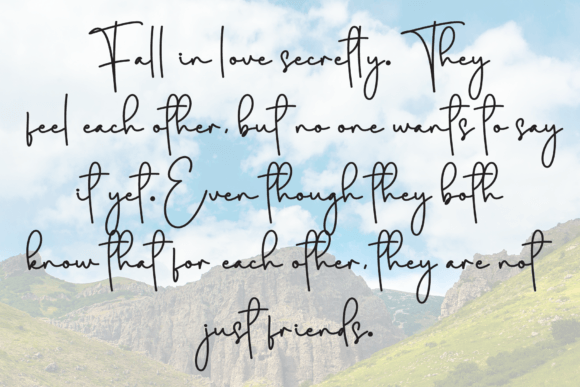 Fall in love secretly. They
feel each other, but no one wants to say
it yet. Even though they both
know that for each other, they are not
just friends.